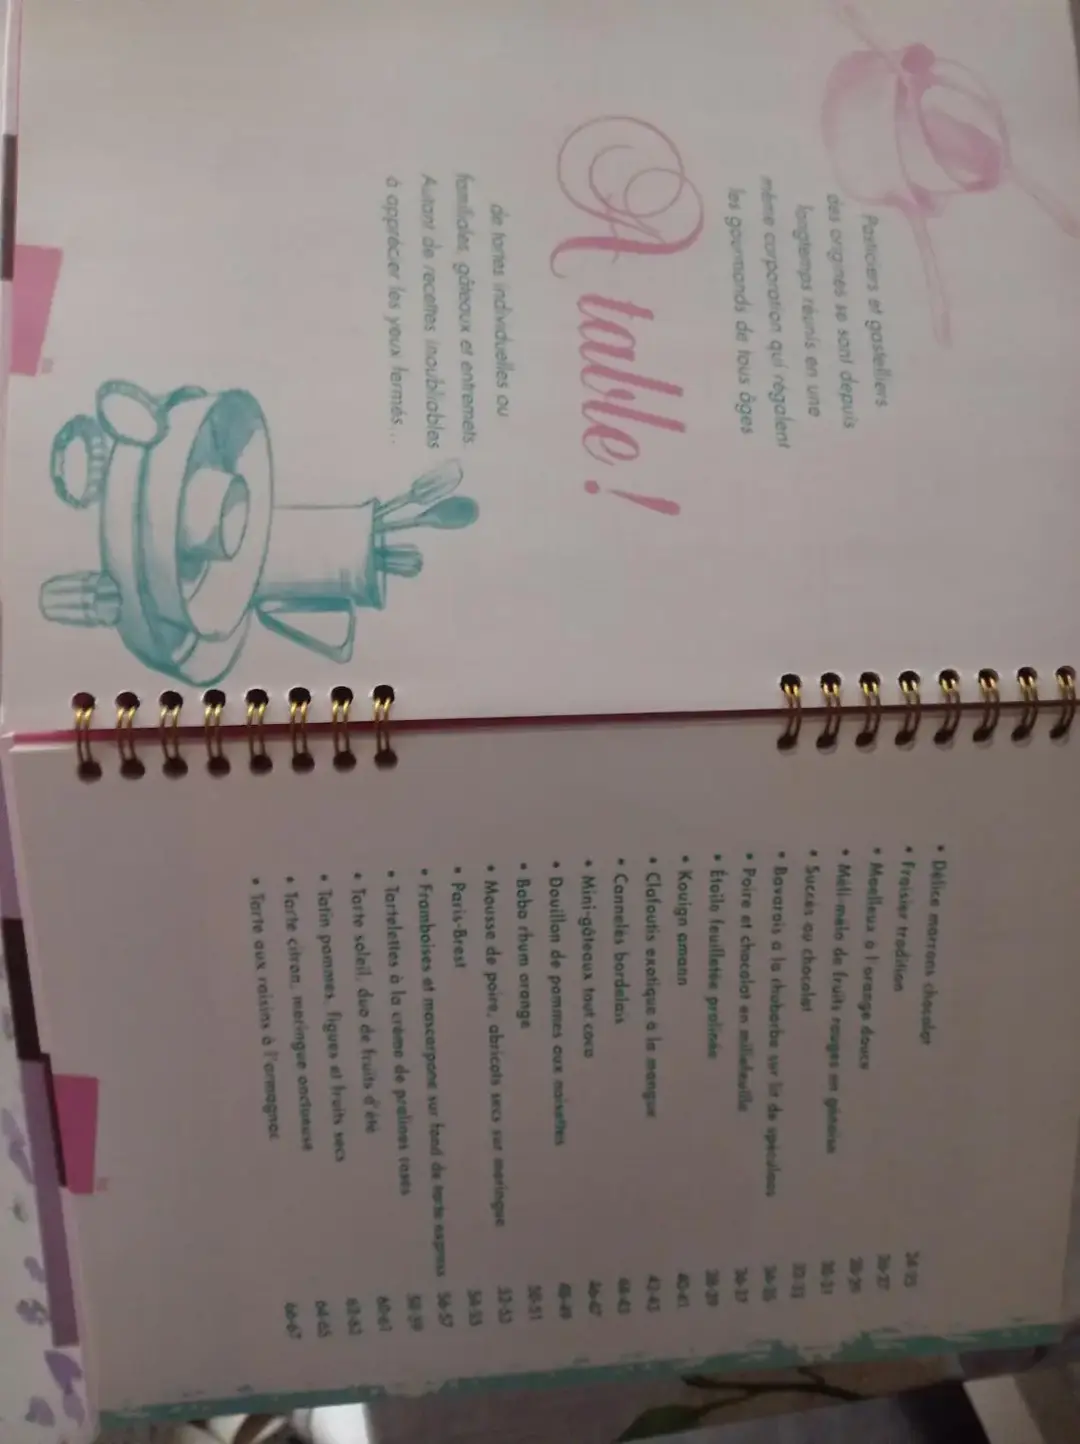 Pasticiers et gastelliers
des origines se sont depuis
longtemps réunis en une
même corporation qui régalent
les gourmands de tous âges
A table !
de tartes individuelles ou
familiales, gâteaux et entremets.
Autant de recettes inoubliables
à apprécier les yeux fermés...
• Délice marrons chocolat 24-25
• Fraisier tradition 26-27
• Moelleux à l'orange douce 28-29
• Méli-mélo de fruits rouges en génoise 30-31
• Succès au chocolat 32-33
• Bavarois à la rhubarbe sur lit de spéculoos 34-35
• Poire et chocolat en millefeuille 36-37
• Étoile feuilletée pralinée 38-39
• Kouign amann 40-41
• Clafoutis exotique à la mangue 42-43
• Cannelés bordelais 44-45
• Mini-gâteaux tout coco 46-47
• Douillon de pommes aux noisettes 48-49
• Baba rhum orange 50-51
• Mousse de poire, abricots secs sur meringue 52-53
• Paris-Brest 54-55
• Framboises et mascarpone sur fond de tarte express 56-57
• Tartelettes à la crème de pralines roses 58-59
• Tarte soleil, duo de fruits d'été 60-61
• Tatin pommes, figues et fruits secs 62-63
• Tarte citron, meringue onctueuse 64-65
• Tarte aux raisins à l'armagnac 66-67